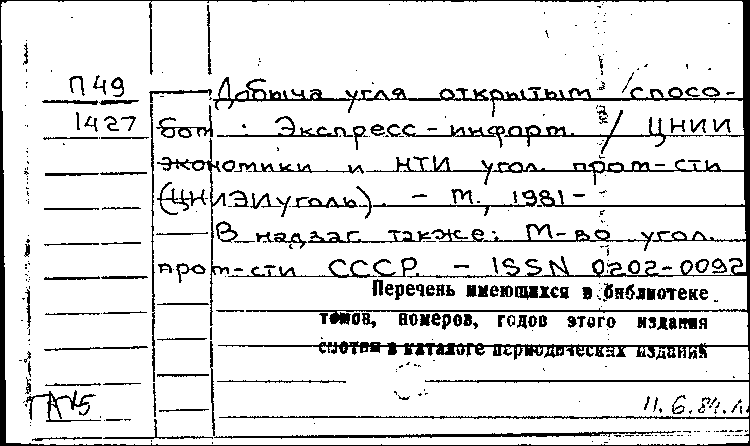 П49
1427
Добыча угля открытым спосо-
бом : Экспресс-информ. / ЦНИИ
экономики и НТИ угол. пром-сти
(ЦНИЭИуголь). - М., 1981-
В надзаг. также: М-во угол.
пром-сти СССР. - ISSN 0202-0092
Перечень имеющихся в библиотеке
томов, номеров, годов этого издания
смотри в каталоге периодических изданий
11.6.84.